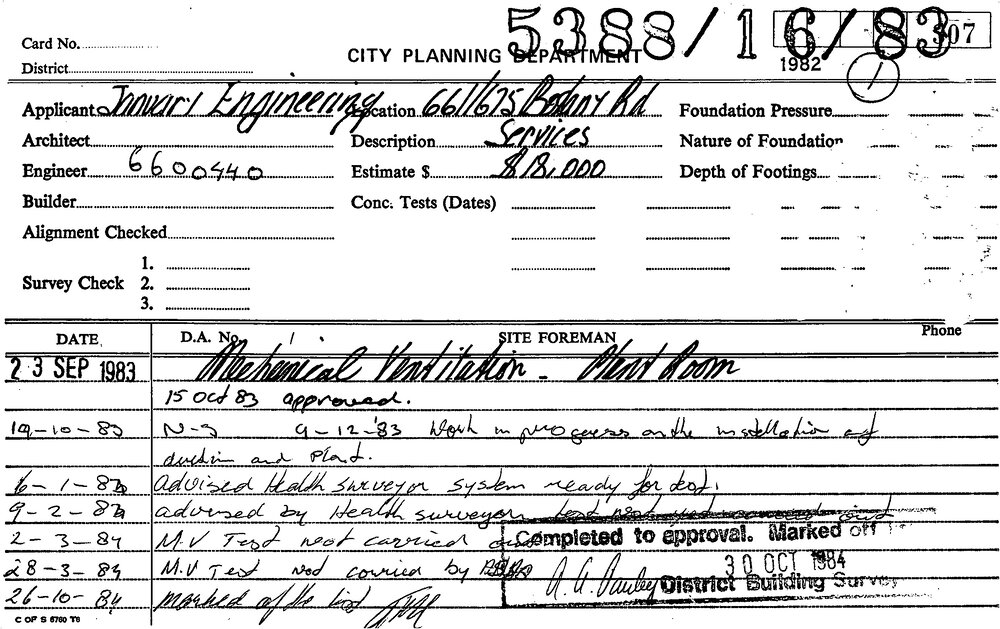 5388/16/83 307
Card No.
CITY PLANNING DEPARTMENT 1982 1
District
Applicant January Engineering Location 661/675 Botany Rd Foundation Pressure
Architect Description Services Nature of Foundation
Engineer 6600440 Estimate $ $18,000 Depth of Footings
Builder Conc. Tests (Dates)
Alignment Checked
1.
Survey Check 2.
3.
DATE D.A. No. SITE FOREMAN Phone
23 SEP 1983 Mechanical Ventilation - Plant Room
15 Oct 83 approved.
19-10-83 N-S 9-12-83 Work in progress on the installation of
and Plant.
6-1-84 Advised Health surveyor system ready for test.
9-2-84 advised by Health surveyor test not
2-3-84 M.V Test not carried out
Completed to approval. Marked off
28-3-84 M.V Test not carried by
30 OCT 1984
District Building Survey
26-10-84 marked of the
C OF S 6760 T6